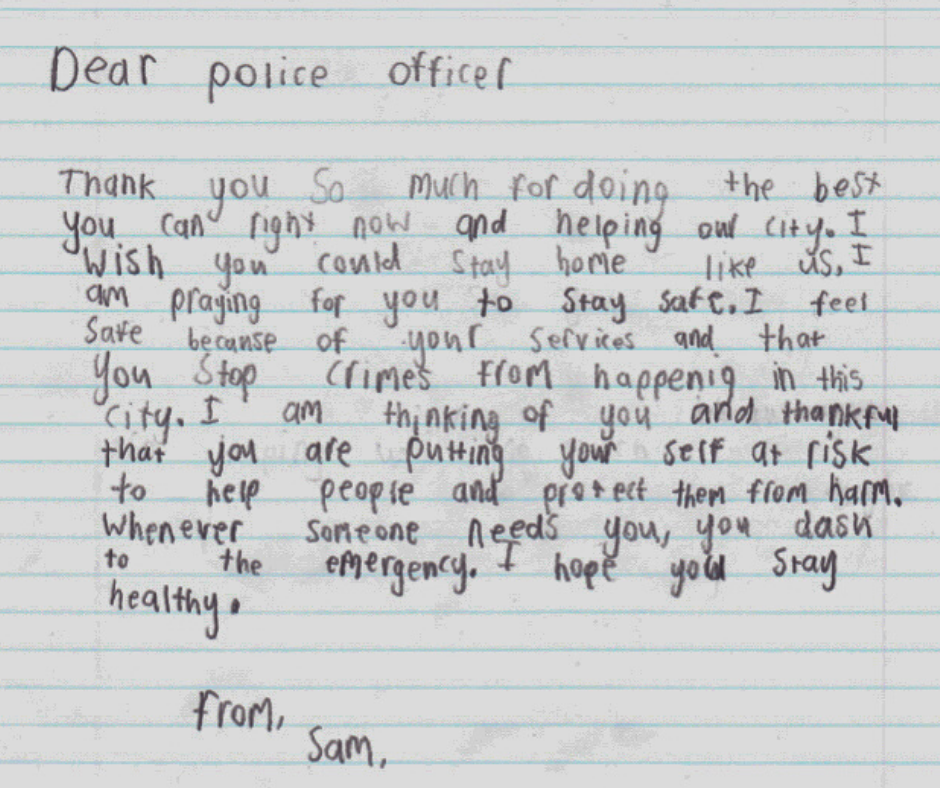 Dear police officer
Thank you So much for doing the best
you can right now and helping our city. I
wish you could stay home like us. I
am praying for you to stay safe. I feel
safe because of your services and that
you stop crimes from happenig in this
city. I am thinking of you and thankful
that you are putting your self at risk
to help people and protect them from harm.
whenever someone needs you, you dash
to the emergency. I hope you stay
healthy.
from,
Sam,